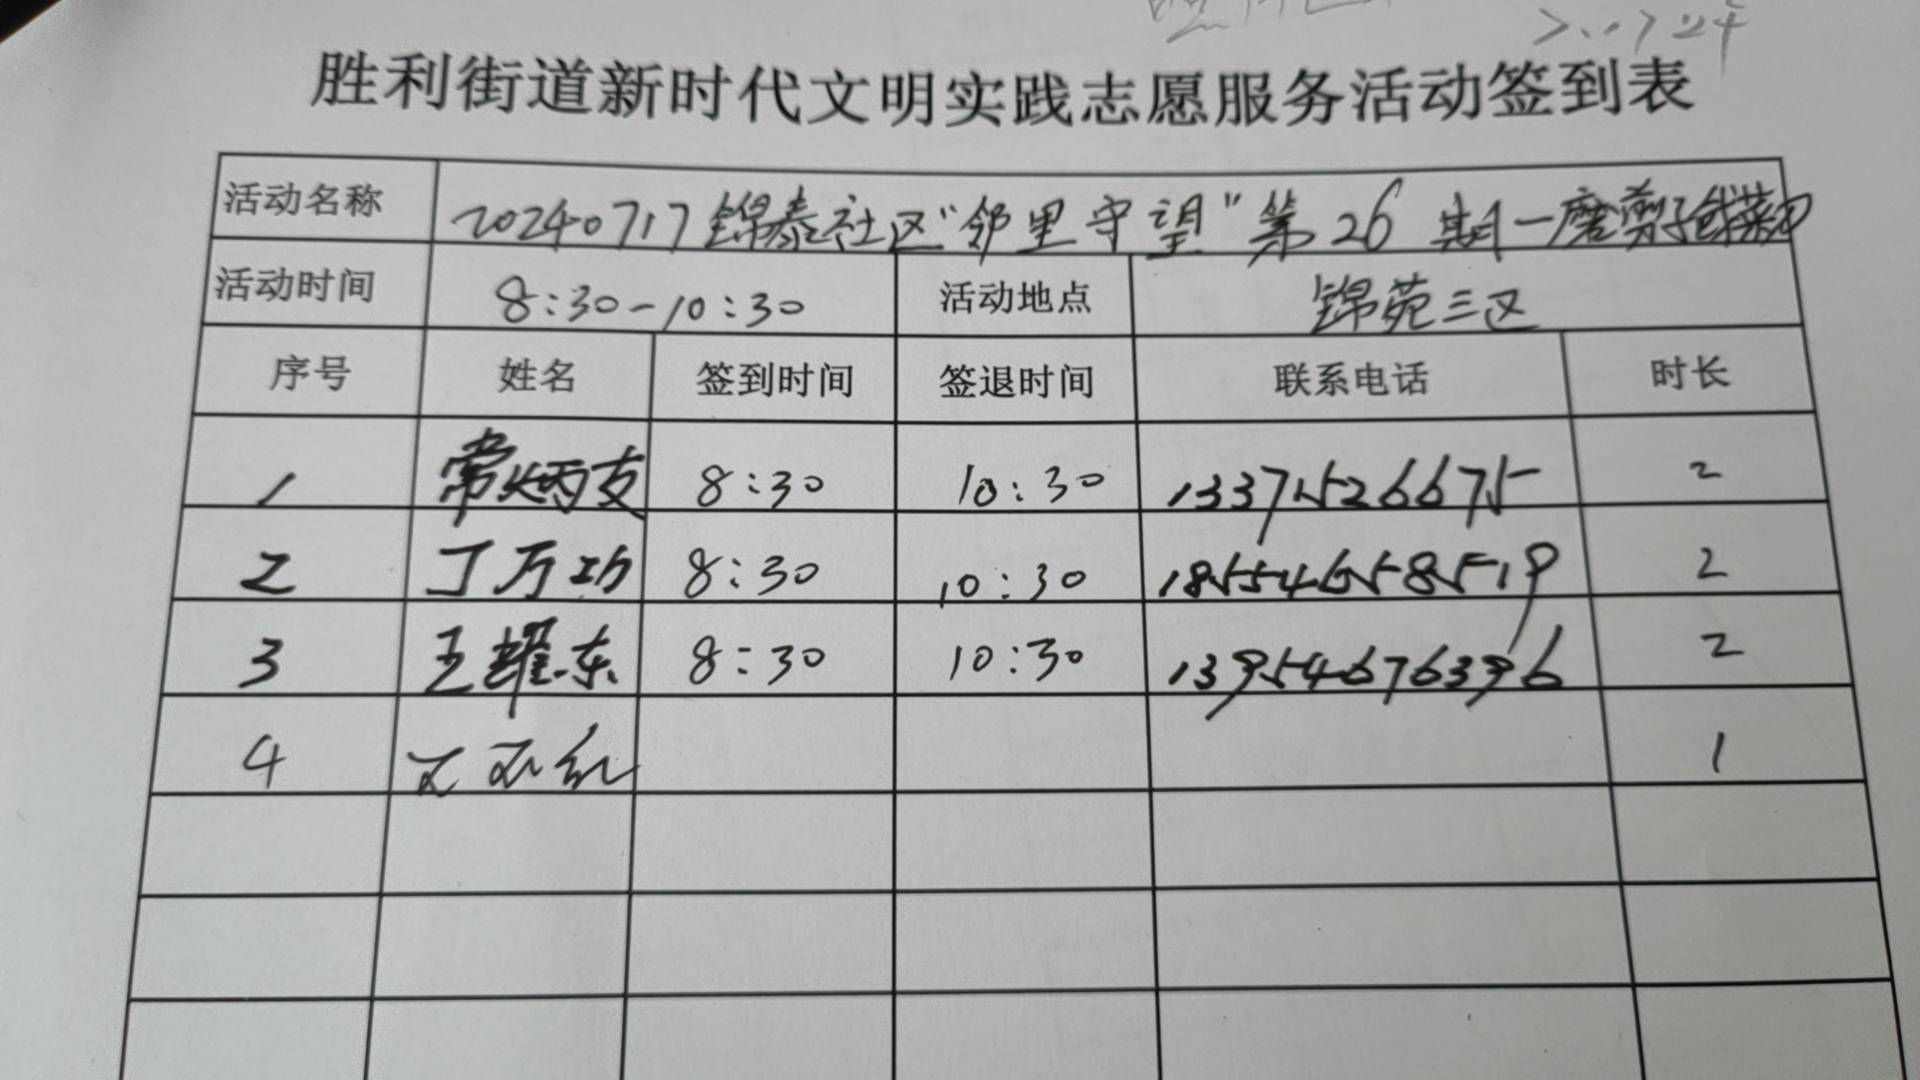 胜利街道新时代文明实践志愿服务活动签到表
活动名称 20240717锦泰社区“邻里守望”第26期—磨剪子戗菜刀
活动时间 8:30-10:30 活动地点 锦苑三区
序号 姓名 签到时间 签退时间 联系电话 时长
1 常炳友 8:30 10:30 13371526675 2
2 丁万功 8:30 10:30 18554658519 2
3 王耀东 8:30 10:30 13954676396 2
4 1